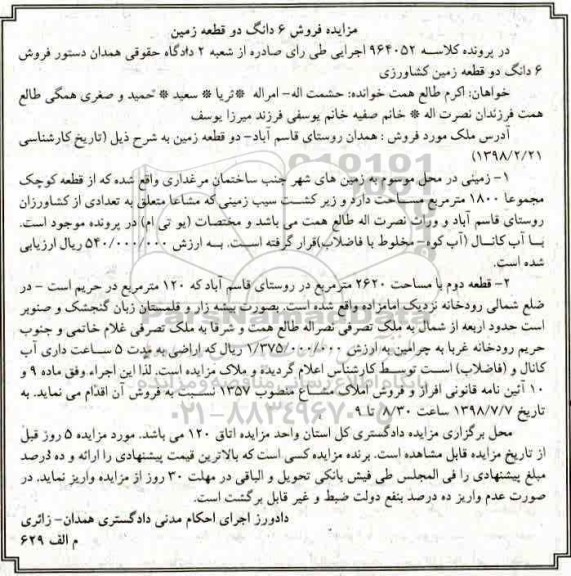 مزایده فروش ۶ دانگ دو قطعه زمین
در پرونده کلاسه ۹۶۴۰۵۲ اجرایی طی رای صادره از شعبه ۲ دادگاه حقوقی همدان دستور فروش
۶ دانگ دو قطعه زمین کشاورزی
خواهان: اکرم طالع همت خوانده: حشمت اله- امراله *ثریا * سعید * حمید و صغری همگی طالع
همت فرزندان نصرت اله * خانم صفیه خانم یوسفی فرزند میرزا یوسف
آدرس ملک مورد فروش : همدان روستای قاسم آباد- دو قطعه زمین به شرح ذیل (تاریخ کارشناسی
۱۳۹۸/۲/۲۱)
۱- زمینی در محل موسوم به زمین های شهر جنب ساختمان مرغداری واقع شده که از قطعه کوچک
مجموعا ۱۸۰۰ مترمربع مساحت دارد و زیر کشت سیب زمینی که مشاعا متعلق به تعدادی از کشاورزان
روستای قاسم آباد و وراث نصرت اله طالع همت می باشد و مختصات (یو تی ام) در پرونده موجود است.
با آب کانال (آب کوه- مخلوط با فاضلاب)قرار گرفته است. به ارزش ۵۴۰/۰۰۰/۰۰۰ ریال ارزیابی
شده است.
۲- قطعه دوم با مساحت ۲۶۲۰ مترمربع در روستای قاسم آباد که ۱۲۰ مترمربع در حریم است - در
ضلع شمالی رودخانه نزدیک امامزاده واقع شده است. بصورت بیشه زار و قلمستان زبان گنجشک و صنوبر
است حدود اربعه از شمال به ملک تصرفی نصراله طالع همت و شرقا به ملک تصرفی غلام خاتمی و جنوب
حریم رودخانه غربا به چرامین به ارزش ۱/۳۷۵/۰۰۰/۰۰۰ ریال که اراضی به مدت ۵ ساعت داری آب
کانال و (فاضلاب) است توسط کارشناس اعلام گردیده و ملاک مزایده است. لذا این اجراء وفق ماده ۹ و
۱۰ آئین نامه قانونی افراز و فروش املاک مشاع منصوب ۱۳۵۷ نسبت به فروش آن اقدام می نماید. به
تاریخ ۱۳۹۸/۷/۷ ساعت ۸/۳۰ تا ۹
محل برگزاری مزایده دادگستری کل استان واحد مزایده اتاق ۱۲۰ می باشد. مورد مزایده ۵ روز قبل
از تاریخ مزایده قابل مشاهده است. برنده مزایده کسی است که بالاترین قیمت پیشنهادی را ارائه و ده درصد
مبلغ پیشنهادی را فی المجلس طی فیش بانکی تحویل و الباقی در مهلت ۳۰ روز از مزایده واریز نماید. در
صورت عدم واریز ده درصد بنفع دولت ضبط و غیر قابل برگشت است.
دادورز اجرای احکام مدنی دادگستری همدان- زائری
م الف ۶۲۹
پایگاه اطلاع رسانی مناقصه و مزایده
۰۲۱-۸۸۳۴۹۶۷۰-۵